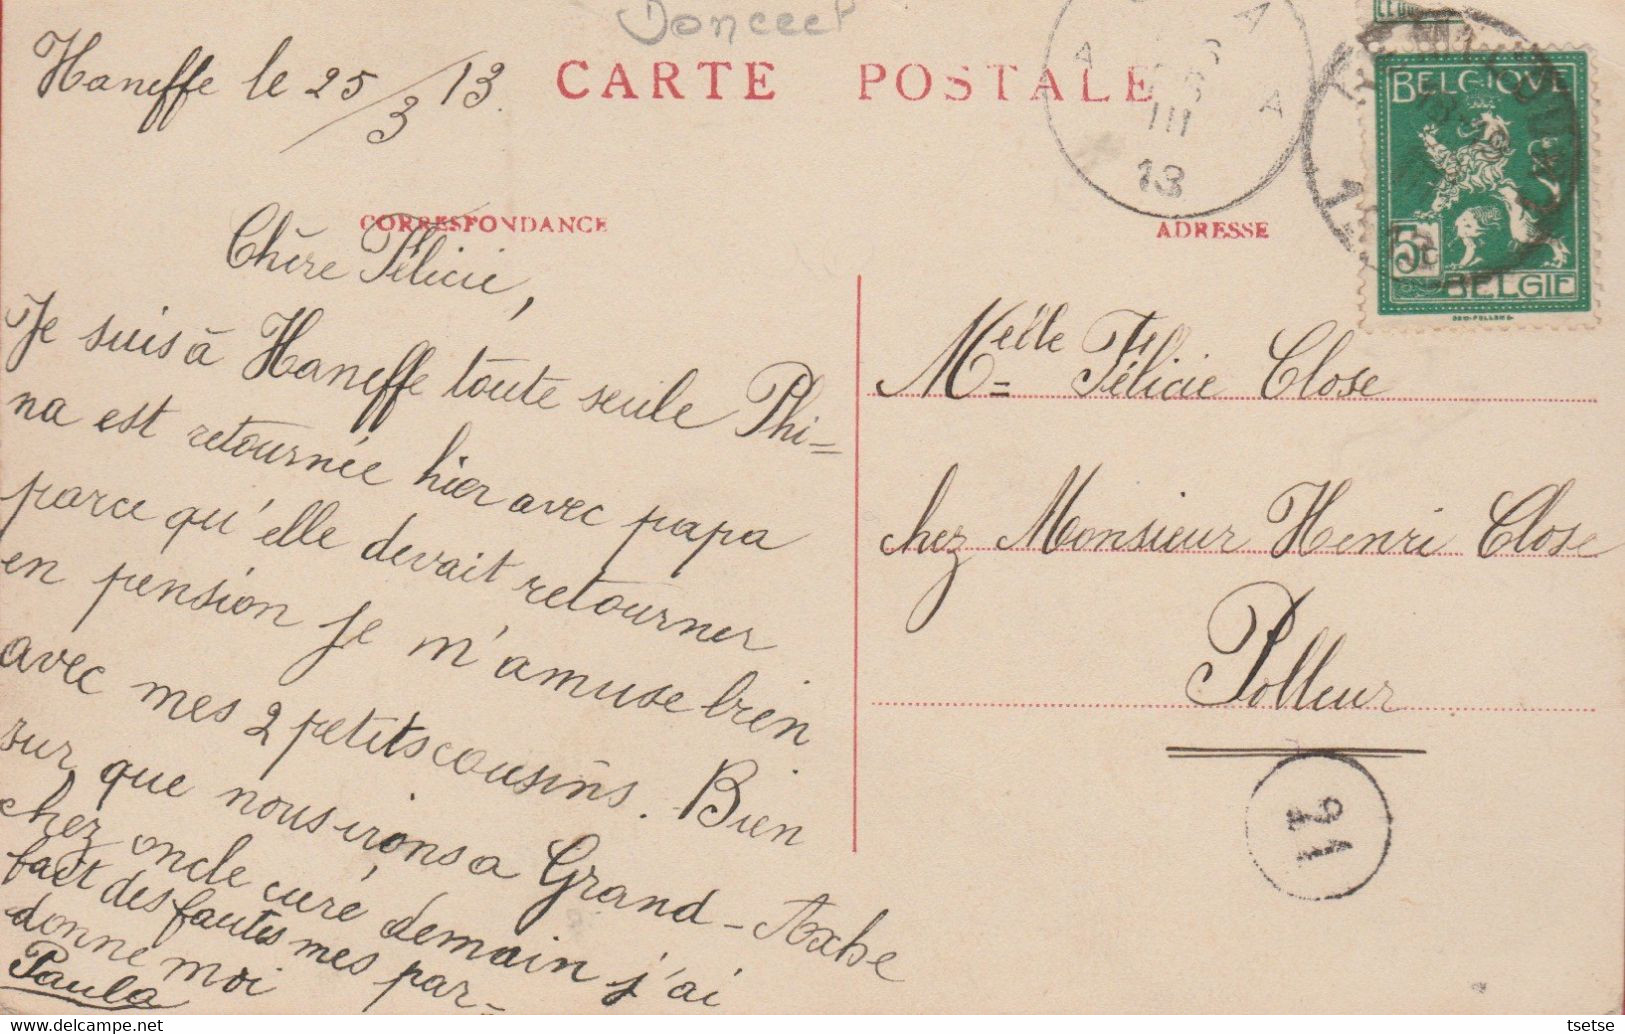 Donceel
Haneffe le 25/3/13.
CARTE POSTALE
CORRESPONDANCE
ADRESSE
Chère Félicie,
Je suis à Haneffe toute seule Phi=
na est retournée hier avec papa
parce qu'elle devait retourner
en pension je m'amuse bien
avec mes 2 petits cousins. Bien
sur que nous irons a Grand-Axhe
chez oncle curé demain j'ai
fait des fautes mes par-
donne moi
Paula
III
13
BELGIQUE
5c
BELGIE
Melle Félicie Close
chez Monsieur Henri Close
Polleur
21
tsetse